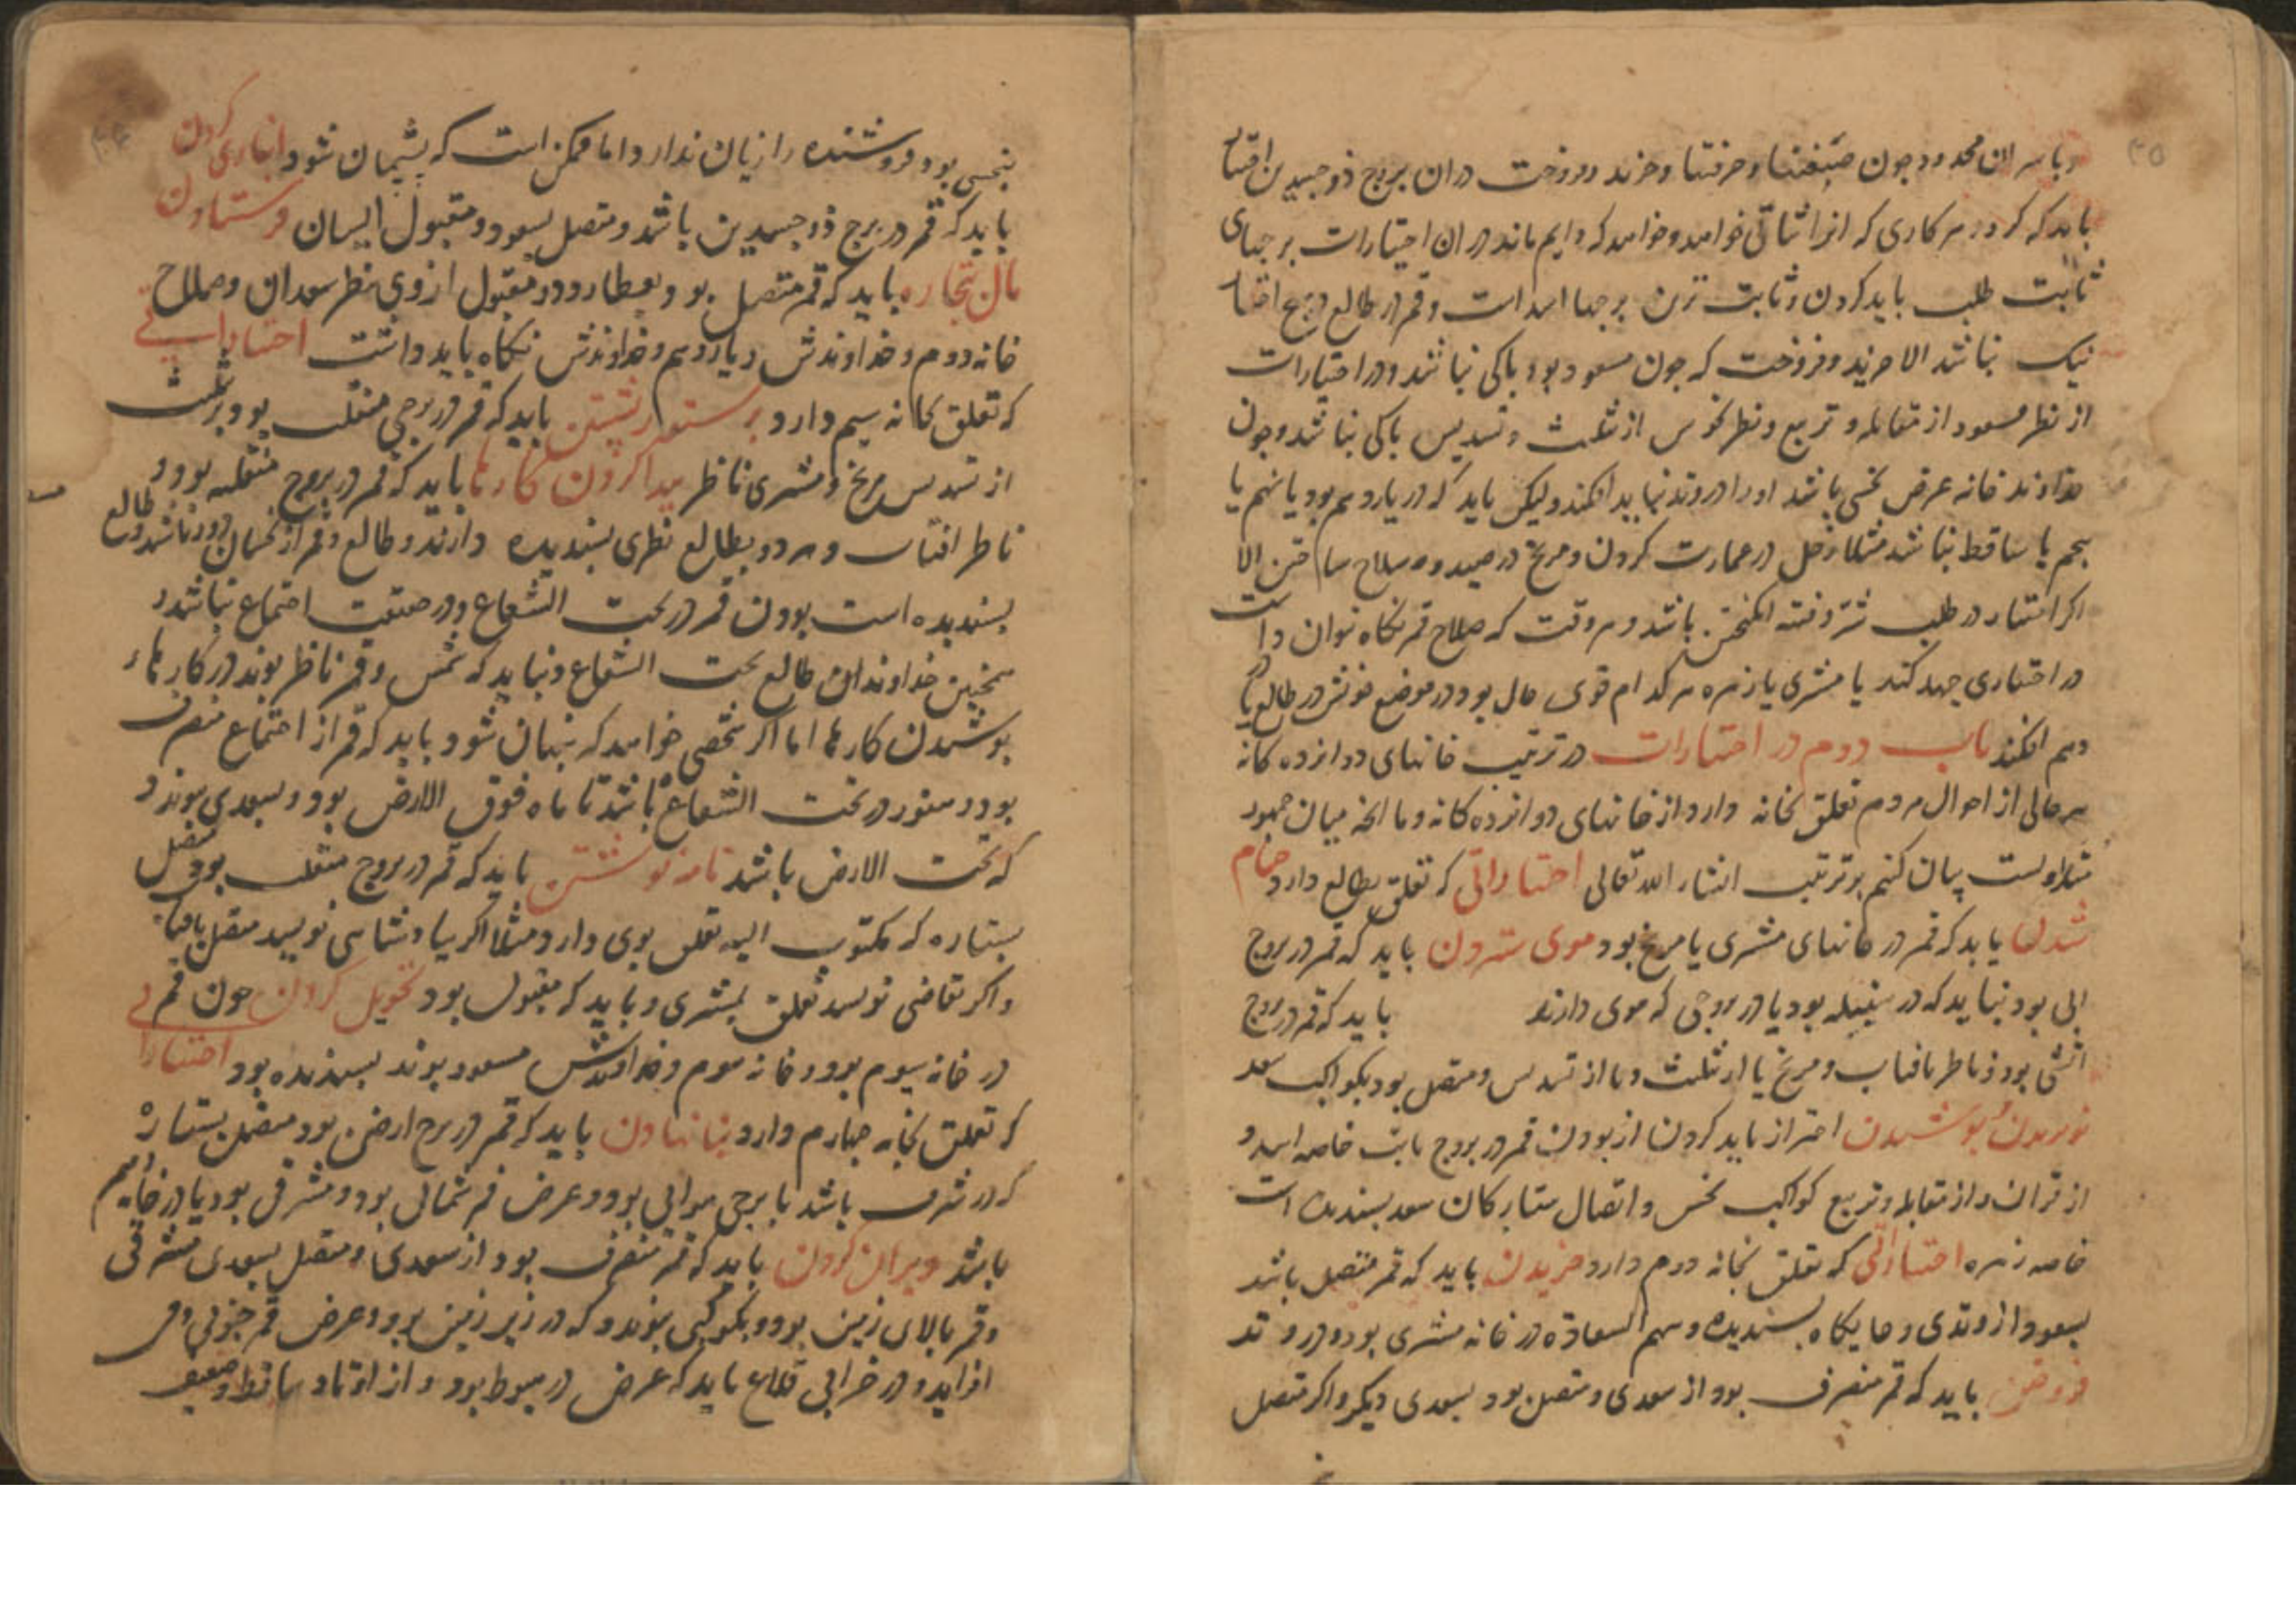 ۳۵
محدود چون صنعتها و حرفتها و خرید و فروخت دران بروج ذو جسدین اختیار
باید که کرد و در هر کاری که انرا ثباتی خواهند و خواهند که دایم ماند در ان اختیارات برجهای
ثابت طلب باید کردن و ثابت ترین برجها اسد است و قمر در طالع
نیک نباشد الا خرید و فروخت که چون مسعود بود باکی نباشد و در اختیارات
از نظر مسعود از مقابله و تربیع و نظر نحوس از تثلیث و تسدیس باکی نباشد و چون
خداوند خانه غرض نحسی باشد او را در وتد نباید افکند ولیکن باید که در یازدهم بود یا نهم یا
پنجم یا ساقط نباشد مثلا زحل در عمارت کردن و مریخ در صید و سلاح ساختن الا
اکر اختیار در طلب شر و فتنه انکیختن باشد و هر وقت که صلاح قمر نکاه نتوان داشت
در اختیاری جهد کند یا مشتری یا زهره هر کدام قوی حال بود در موضع خویش در طالع یا
دهم افکند باب دوم در اختیارات در ترتیب خانهای دوازده کانه
هر حالی از احوال مردم تعلق بخانه دارد از خانهای دوازده کانه و ما انچه میان جمهور
متداولست بیان کنیم بر ترتیب انشاء الله تعالی اختیاراتی که تعلق بطالع دارد حمام
شدن باید که قمر در خانهای مشتری یا مریخ بود موی ستردن باید که قمر در بروج
ابی بود نباید که در سنبله بود یا در بروجی که موی دارند باید که قمر در بروج
اتشی بود و ناظر بافتاب و مریخ یا از تثلیث و یا از تسدیس و متصل بود بکواکب سعد
نو بریدن و پوشیدن احتراز باید کردن از بودن قمر در بروج ثابت خاصه اسد و
از قران و از مقابله و تربیع کواکب نحس و اتصال ستارکان سعد پسندیده است
خاصه زهره اختیاراتی که تعلق بخانه دوم دارد خریدن باید که قمر متصل باشد
بسعود از وتدی و جایکاه پسندیده و سهم السعادة در خانه مشتری بود و در وتد
فروختن باید که قمر منصرف بود از سعدی و متصل بود بسعدی دیکر و اکر متصل
بنحسی بود فروشنده را زیان ندارد اما ممکن است که پشیمان شود انبازی کردن
باید که قمر در برج ذو جسدین باشد و متصل بسعود و مقبول ایشان فرستادن
مال تجاره باید که قمر متصل بود بعطارد و مقبول از وی بنظر سعدان و صلاح
خانه دوم و خداوندش و یازدهم و خداوندش نکاه باید داشت اختیاراتی
که تعلق بخانه سیم دارد بر ستور نشستن باید که قمر در برجی منقلب بود و بتثلیث
از تسدیس مریخ و مشتری ناظر پیدا کردن کارها باید که قمر در بروج منقلبه بود و
ناظر افتاب و هر دو بطالع نظری پسندیده دارند و طالع و قمر از نحسان دور باشد و طالع
پسندیده است بودن قمر در تحت الشعاع و در صنعت اجتماع نباشد و
همچنین خداوندان طالع تحت الشعاع و نباید که شمس و قمر ناظر بوند در کارهاء
پوشیدن کارها اما اکر شخصی خواهد که پنهان شود باید که قمر از اجتماع منصرف
بود و هنوز در تحت الشعاع باشد تا ماه فوق الارض بود و بسعدی بوندد
که تحت الارض باشد نامه نوشتن باید که قمر در بروج منقلب بود متصل
بستاره که مکتوب الیه تعلق بوی دارد مثلا اکر بپادشاهی نویسد متصل بافتاب
و اکر بقاضی نویسد تعلق بمشتری و باید که مقبول بود تحویل کردن چون قمر
در خانه سیوم بود و خانه سوم و خداوندش مسعود بوند پسندیده بود اختیاراتی
که تعلق بخانه چهارم دارد بنا نهادن باید که قمر در برج ارضی بود متصل بستاره
که در شرف باشد یا برجی هوایی بود و عرض قمر شمالی بود و مشرقی بود
باشد ویران کردن باید که قمر منصرف بود از سعدی و متصل بسعدی مشرقی
و قمر بالای زمین بود و بکوکبی بوندد که در زیر زمین بود و عرض قمر جنوبی
افزاید و در خرابی قلاع باید که عرض در هبوط بود و از اوتاد ساقط و ضعیف